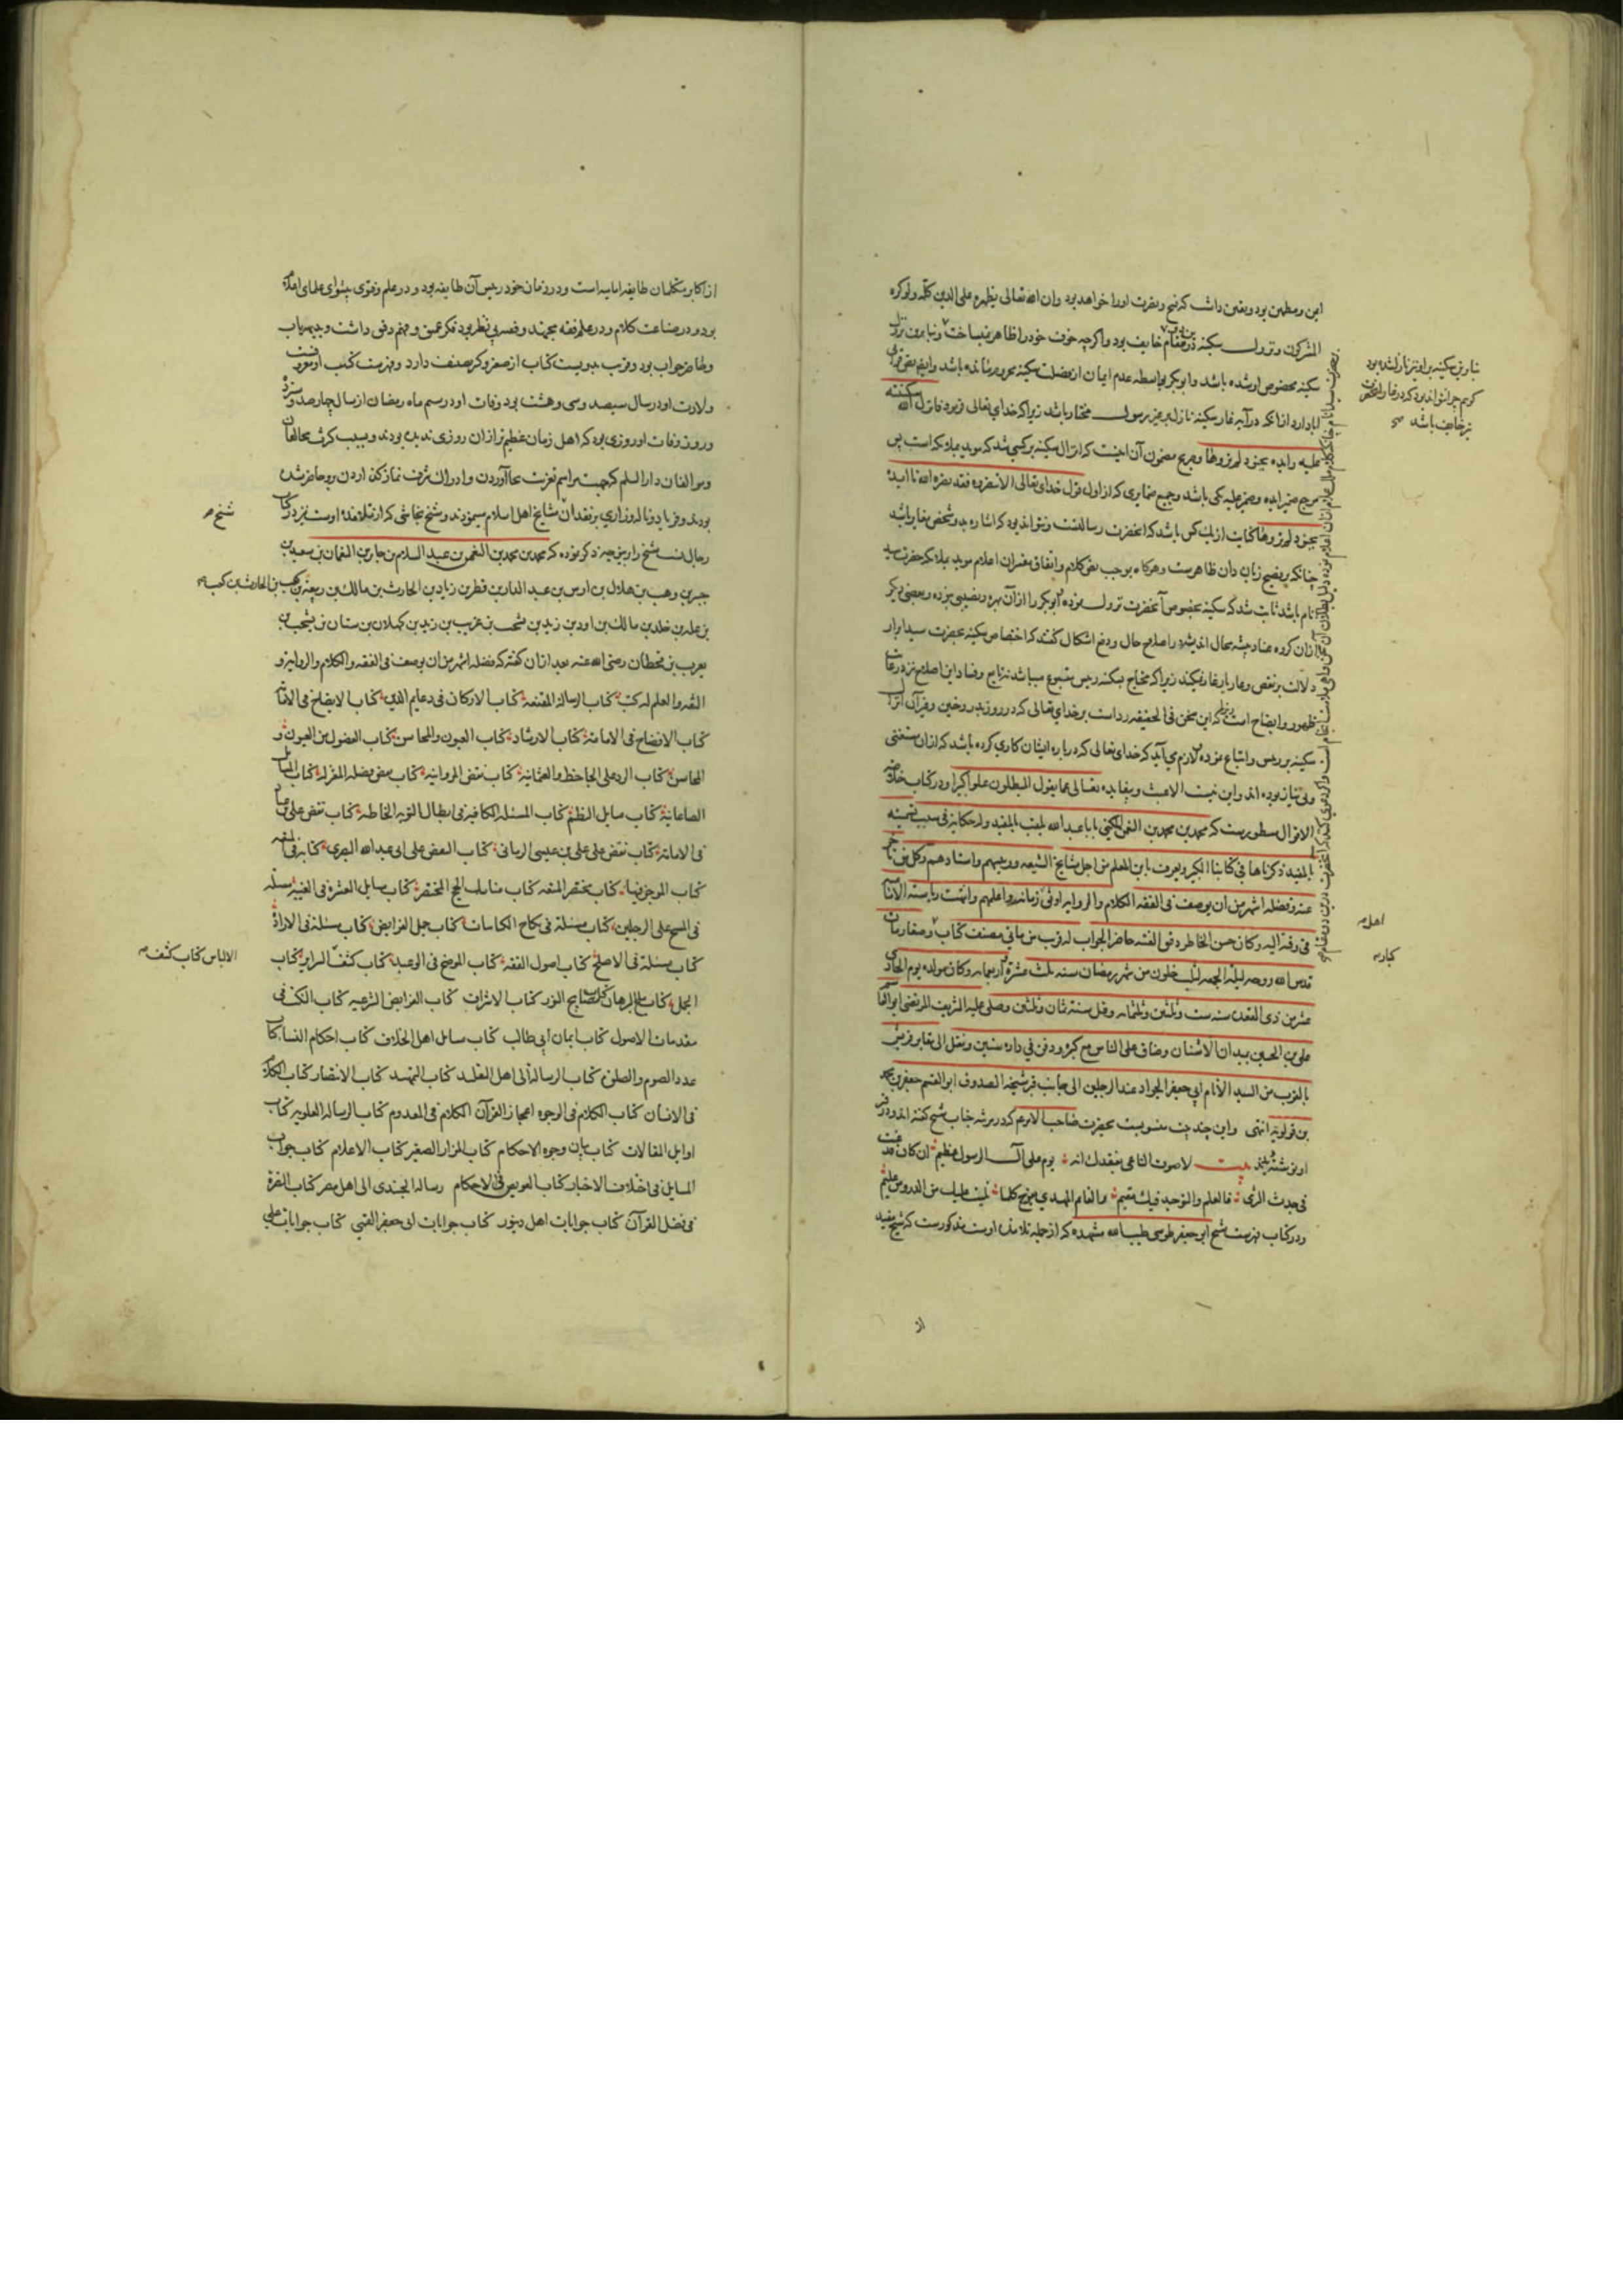 ایمن و مطمئن بود و یقین داشت که فتح و نصرت او را خواهد بود وان الله تعالی یظهره علی الدین کله ولو کره
المشرکون و نزول سکینه در مقام خایف بود و اگرچه خوف خود را ظاهر نمیساخت و بنابرین نزول
سکینه مخصوص او شده باشد و ابوبکر بواسطه عدم ایمان از فضیلت سکینه محروم مانده باشد و ایضا بعضی قولی
ابا دارد از انکه در آیه غار سکینه نازل بر غیر رسول مختار باشد زیرا که خدای تعالی فرمود فانزل الله سکینته
علیه وایده بجنود لم تروها و صریح مضمون آن اینست که انزال سکینه بر کسی شد که موید بملائکه است پس
مرجع ضمیر ایده و ضمیر علیه یکی باشد و جمیع ضمایری که از اول قول خدای تعالی الا تنصروه فقد نصره الله تا ایده
بجنود لم تروها کنایت از یک کس باشد که آنحضرت رسالتست و نتواند بود که اشاره بدو شخص مغایر باشد
چنانکه بر فصیح زبان دان ظاهرست وهرکاه بموجب نص کلام و اتفاق مفسران اعلام موید بملائکه حضرت سید
انام باشد ثابت شد که سکینه بخصوص آنحضرت نزول نموده ابوبکر را از آن بهره و نصیبی نبوده و بعضی دیکر
از آن کروه عناد پیشه محال اندیشه در اصلاح حال و دفع اشکال گفتند که اختصاص سکینه بحضرت سید ابرار
دلالت بر نقص و عار یار غار نمیکند زیرا که محتاج بسکینه رییس متبوع میباشد نه تابع و فساد این اصلاح نیز در غایت
ظهور و ایضاح است زیرا که این سخن فی الحقیقه رد است بر خدای تعالی که در روز بدر و حنین و قرآن انزال
سکینه بر رییس و اتباع نموده و لازم می آید که خدای تعالی که درباره ایشان کاری کرده باشد که از ان مستغنی
و بی نیاز بوده اند و این نیست الا عبث و بیفایده تعالی عما یقول المبطلون علوا کبیرا و در کتاب خلاصه
الاقوال مسطورست که محمد بن محمد بن النعمان یکنی بابا عبد الله یلقب بالمفید وله حکایة فی سبب تسمیته
بالمفید ذکرناها فی کتابنا الکبیر ویعرف بابن المعلم من اجل مشایخ الشیعه ورییسهم واستادهم وکل من تاخر
عنه وفضله اشهر من ان یوصف فی الفقه والکلام والروایه اوثق زمانه واعلمهم وانتهت ریاسة الامامیه
فی وقته الیه وکان حسن الخاطر دقیق الفتنه حاضر الجواب له قریب من مأتی مصنف کتاب وصغار مات
قدس الله روحه لیلة الجمعه لثلث خلون من شهر رمضان سنه ثلث عشرة واربعمایه وکان مولده یوم الحادی
عشر من ذی القعده سنه ست وثلثین وثلثمایه وقیل سنة ثمان وثلثین وصلی علیه الشریف المرتضی ابوالقاسم
علی بن الحسین بمیدان الاشنان وضاق علی الناس مع کبره ودفن فی داره سنین ونقل الی مقابر قریش
بالقرب من السید الامام ابی جعفر الجواد عند الرجلین الی جانب قبر شیخه الصدوق ابو القسم جعفر بن محمد
بن قولویه انتهی و این چند بیت منسوبست بحضرت صاحب الامر که در مرثیه جناب شیخ گفته اند و در قبر
او نوشته دیدند بیت لاصوت الناعی بفقدك انه یوم علی آل الرسول عظیم ان کان قد غیبت
فی جدث الثری فالعلم والتوحید فیك مقیم والقائم المهدی یفرح کلما تلیت علیك من الدروس علوم
و در کتاب فهرست شیخ ابو جعفر طوسی طیب الله مشهده که از جمله تلامذه اوست مذکورست که شیخ مفید
از
اهل م
کبار م
از اکابر متکلمان طایفه امامیه است و در زمان خود رییس آن طایفه بود و در علم و تقوی پیشوای علمای امامیه
بود و در صناعت کلام و در علم فقه مجتهد و فصیح بی نظیر بود فکر عمیق و فهم دقیق داشت و بدیهه یاب
و حاضر جواب بود و قریب بدویست کتاب از صغیر و کبیر مصنف دارد و فهرست کتب او معروفست
ولادت او در سال سیصد و سی و هشت بود و وفات او در سیم ماه رمضان از سال چارصد و سیزده
و روز وفات او روزی بود که اهل زمان عظیم تر از ان روزی ندیده بودند و بسبب کثرت مخالفان
و موالفان دار السلم که بجهت مراسم تعزیت بجا آوردن و ادراك شرف نماز گذاردن برو حاضر شده
بودند و فریاد و ناله و زاری بر فقدان مشایخ اهل اسلام مینمودند و شیخ نجاشی که از تلامذه اوست نیز در کتاب
شیخ م
رجال نسب شیخ را بدین وجه ذکر نموده که محمد بن محمد بن النعمن بن عبد السلام بن جابر بن النعمان بن سعید بن
جبیر بن وهب بن هلال بن اوس بن عبد الدار بن قطر بن زیاد بن الحارث بن مالك بن ربیعه بن کعب بن الحارث بن کعب م
بن عله بن خلد بن مالك بن اود بن زید بن یشجب بن عریب بن زید بن کهلان بن سبان بن یشجب بن
یعرب بن قحطان رضی الله عنه بعد از ان گفته که فضله اشهر من ان یوصف فی الفقه والکلام والروایة و
الثقه والعلم له کتب کتاب الرسالة المقنعة کتاب الارکان فی دعایم الدین کتاب الایضاح فی الامامة
کتاب الافصاح فی الامامة کتاب الارشاد کتاب العیون والمحاسن کتاب الفصول من العیون و
المحاسن کتاب الرد علی الجاحظ والعثمانیة کتاب نقض المروانیه کتاب نقض فضیله المعتزله کتاب المسایل
الصاغانیة کتاب مسایل النظم کتاب المسئله الکافیه فی ابطال التوبه الخاطئه کتاب نقض علی بن عباد
فی الامامة کتاب نقض علی علی بن عیسی الرمانی کتاب النقض علی ابی عبد الله البصری کتابه فی المتعه
کتاب الموجز فیها کتاب مختصر المتعه کتاب مناسك الحج المختصر کتاب مسایل العشره فی الغیبه مسئله
فی المسح علی الرجلین کتاب مسئلة فی نکاح الکتابیات کتاب جمل الفرایض کتاب مسئلة فی الارادة
کتاب مسئلة فی الاصلح کتاب اصول الفقه کتاب الموضح فی الوعید کتاب کشف السرایر کتاب
الالباس کتاب کشف م
الجمل کتاب لمح البرهان کتاب مصابیح النور کتاب الاشراف کتاب الفرایض الشرعیه کتاب النکت فی
مقدمات الاصول کتاب ایمان ابی طالب کتاب مسایل اهل الخلاف کتاب احکام النساء کتاب
عدد الصوم والصلوة کتاب الرسالة الی اهل التقلید کتاب التمهید کتاب الانتصار کتاب الکلام
فی الانسان کتاب الکلام فی الوجوه اعجاز القرآن الکلام فی المعدوم کتاب الرساله العلویه کتاب
اوایل المقالات کتاب بیان وجوه الاحکام کتاب المزار الصغیر کتاب الاعلام کتاب جواب
المسایل فی اختلاف الاخبار کتاب العویص فی الاحکام رسالة الجندی الی اهل مصر کتاب النصرة
فی فضل القرآن کتاب جوابات اهل دینور کتاب جوابات ابی جعفر القمی کتاب جوابات علی